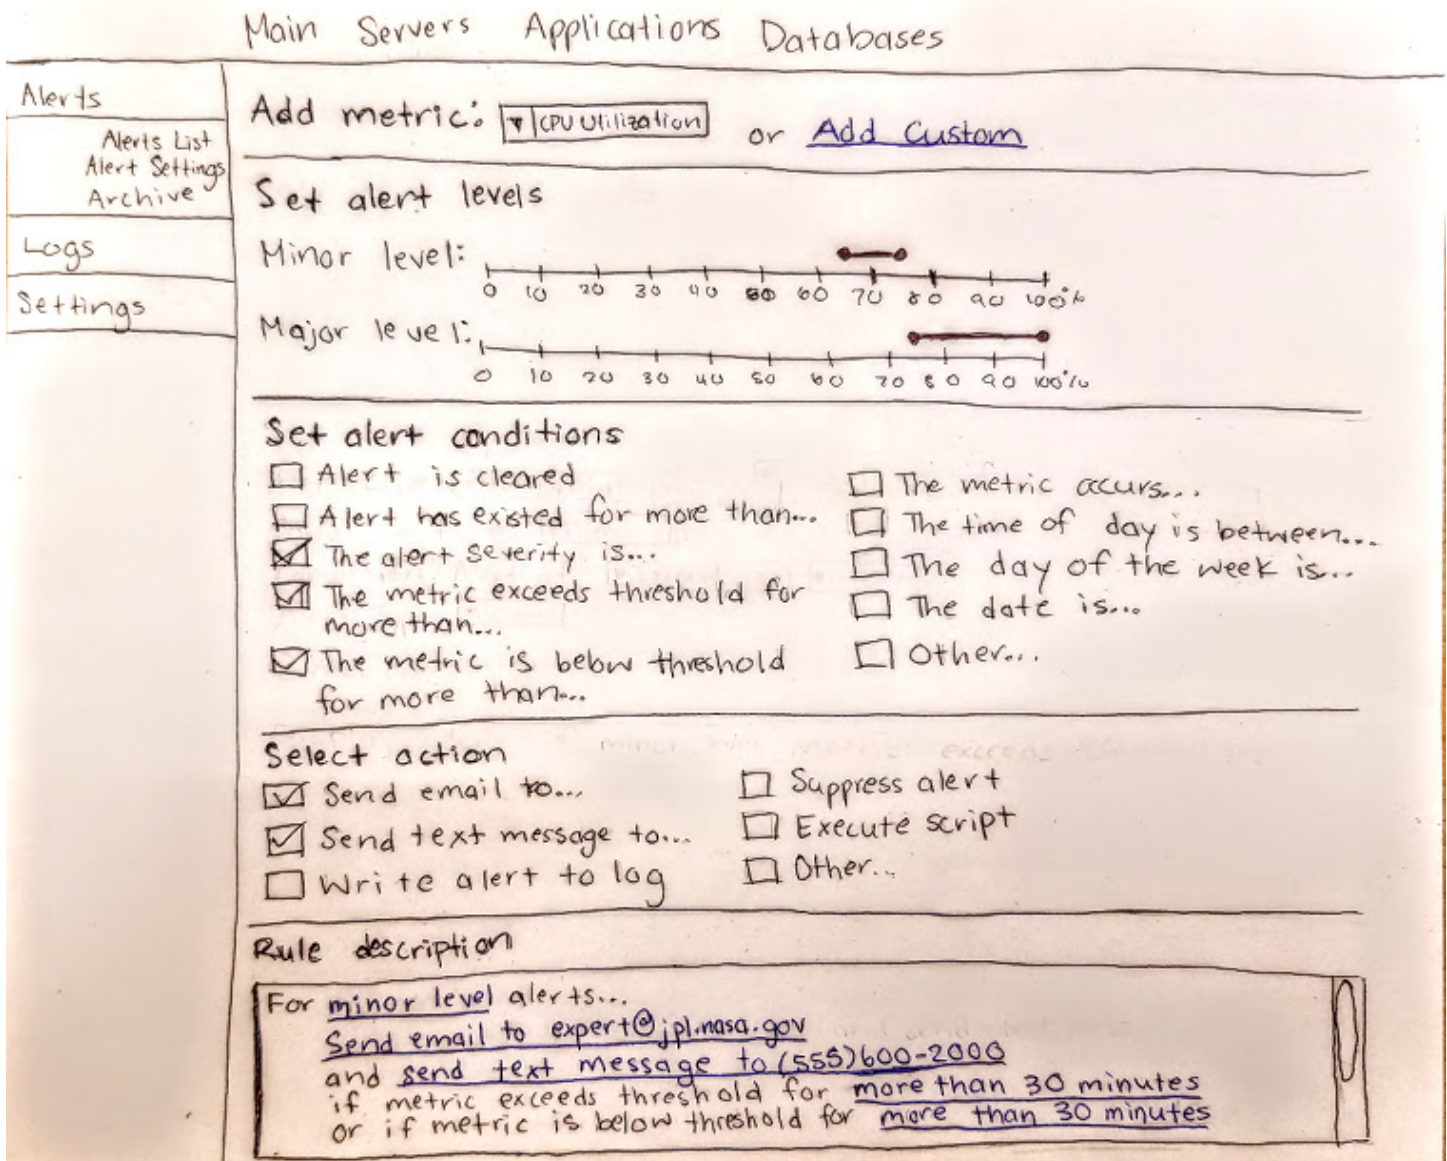 Main Servers Applications Databases
Alerts
Alerts List
Alert Settings
Archive
Logs
Settings
Add metric: CPU Utilization or Add Custom
Set alert levels
Minor level:
0 10 20 30 40 50 60 70 80 90 100%
Major level:
0 10 20 30 40 50 60 70 80 90 100%
Set alert conditions
Alert is cleared
Alert has existed for more than...
The alert severity is...
The metric exceeds threshold for
more than...
The metric is below threshold
for more than...
The metric occurs...
The time of day is between...
The day of the week is...
The date is...
Other...
Select action
Send email to...
Send text message to...
Write alert to log
Suppress alert
Execute script
Other...
Rule description
For minor level alerts...
Send email to expert@jpl.nasa.gov
and send text message to (555)600-2000
if metric exceeds threshold for more than 30 minutes
or if metric is below threshold for more than 30 minutes